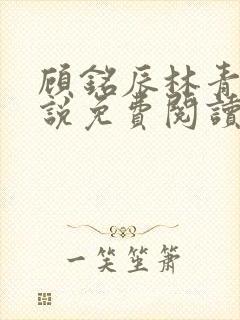 顧銘辰林青
說免費閱讀
一笑笙簫